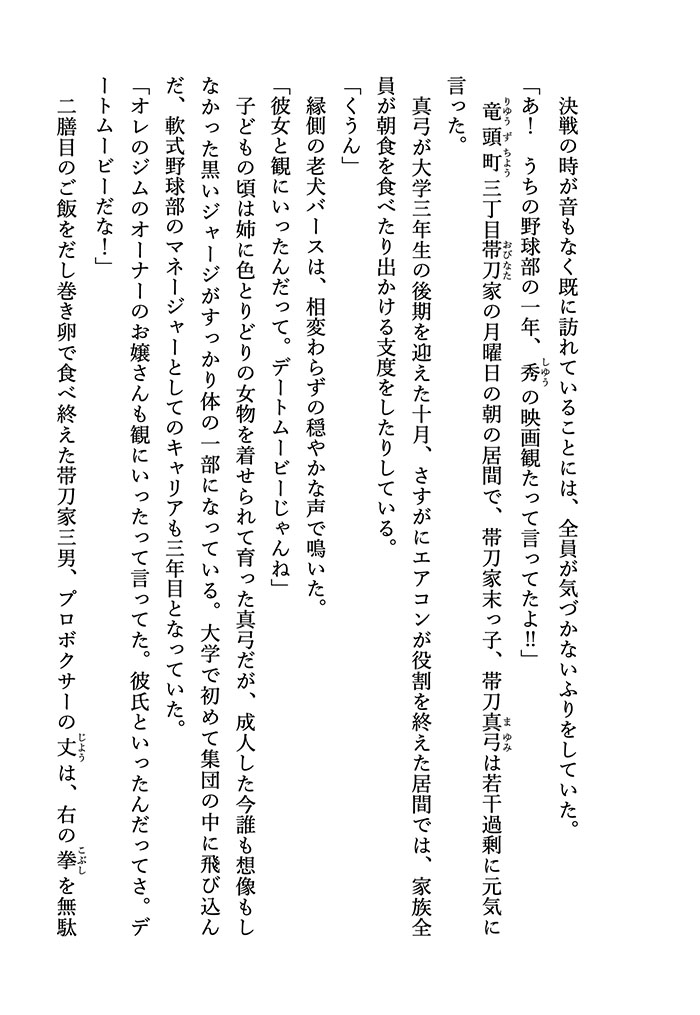 決戦の時が音もなく既に訪れていることには、全員が気づかないふりをしていた。
「あ！　うちの野球部の一年、秀の映画観たって言ってたよ!!」
竜頭町三丁目帯刀家の月曜日の朝の居間で、帯刀家末っ子、帯刀真弓は若干過剰に元気に
言った。
真弓が大学三年生の後期を迎えた十月、さすがにエアコンが役割を終えた居間では、家族全
員が朝食を食べたり出かける支度をしたりしている。
「くうん」
縁側の老犬バースは、相変わらずの穏やかな声で鳴いた。
「彼女と観にいったんだって。デートムービーじゃんね」
子どもの頃は姉に色とりどりの女物を着せられて育った真弓だが、成人した今誰も想像もし
なかった黒いジャージがすっかり体の一部になっている。大学で初めて集団の中に飛び込ん
だ、軟式野球部のマネージャーとしてのキャリアも三年目となっていた。
「オレのジムのオーナーのお嬢さんも観にいったって言ってた。彼氏といったんだってさ。デ
ートムービーだな！」
二膳目のご飯をだし巻き卵で食べ終えた帯刀家三男、プロボクサーの丈は、右の拳を無駄